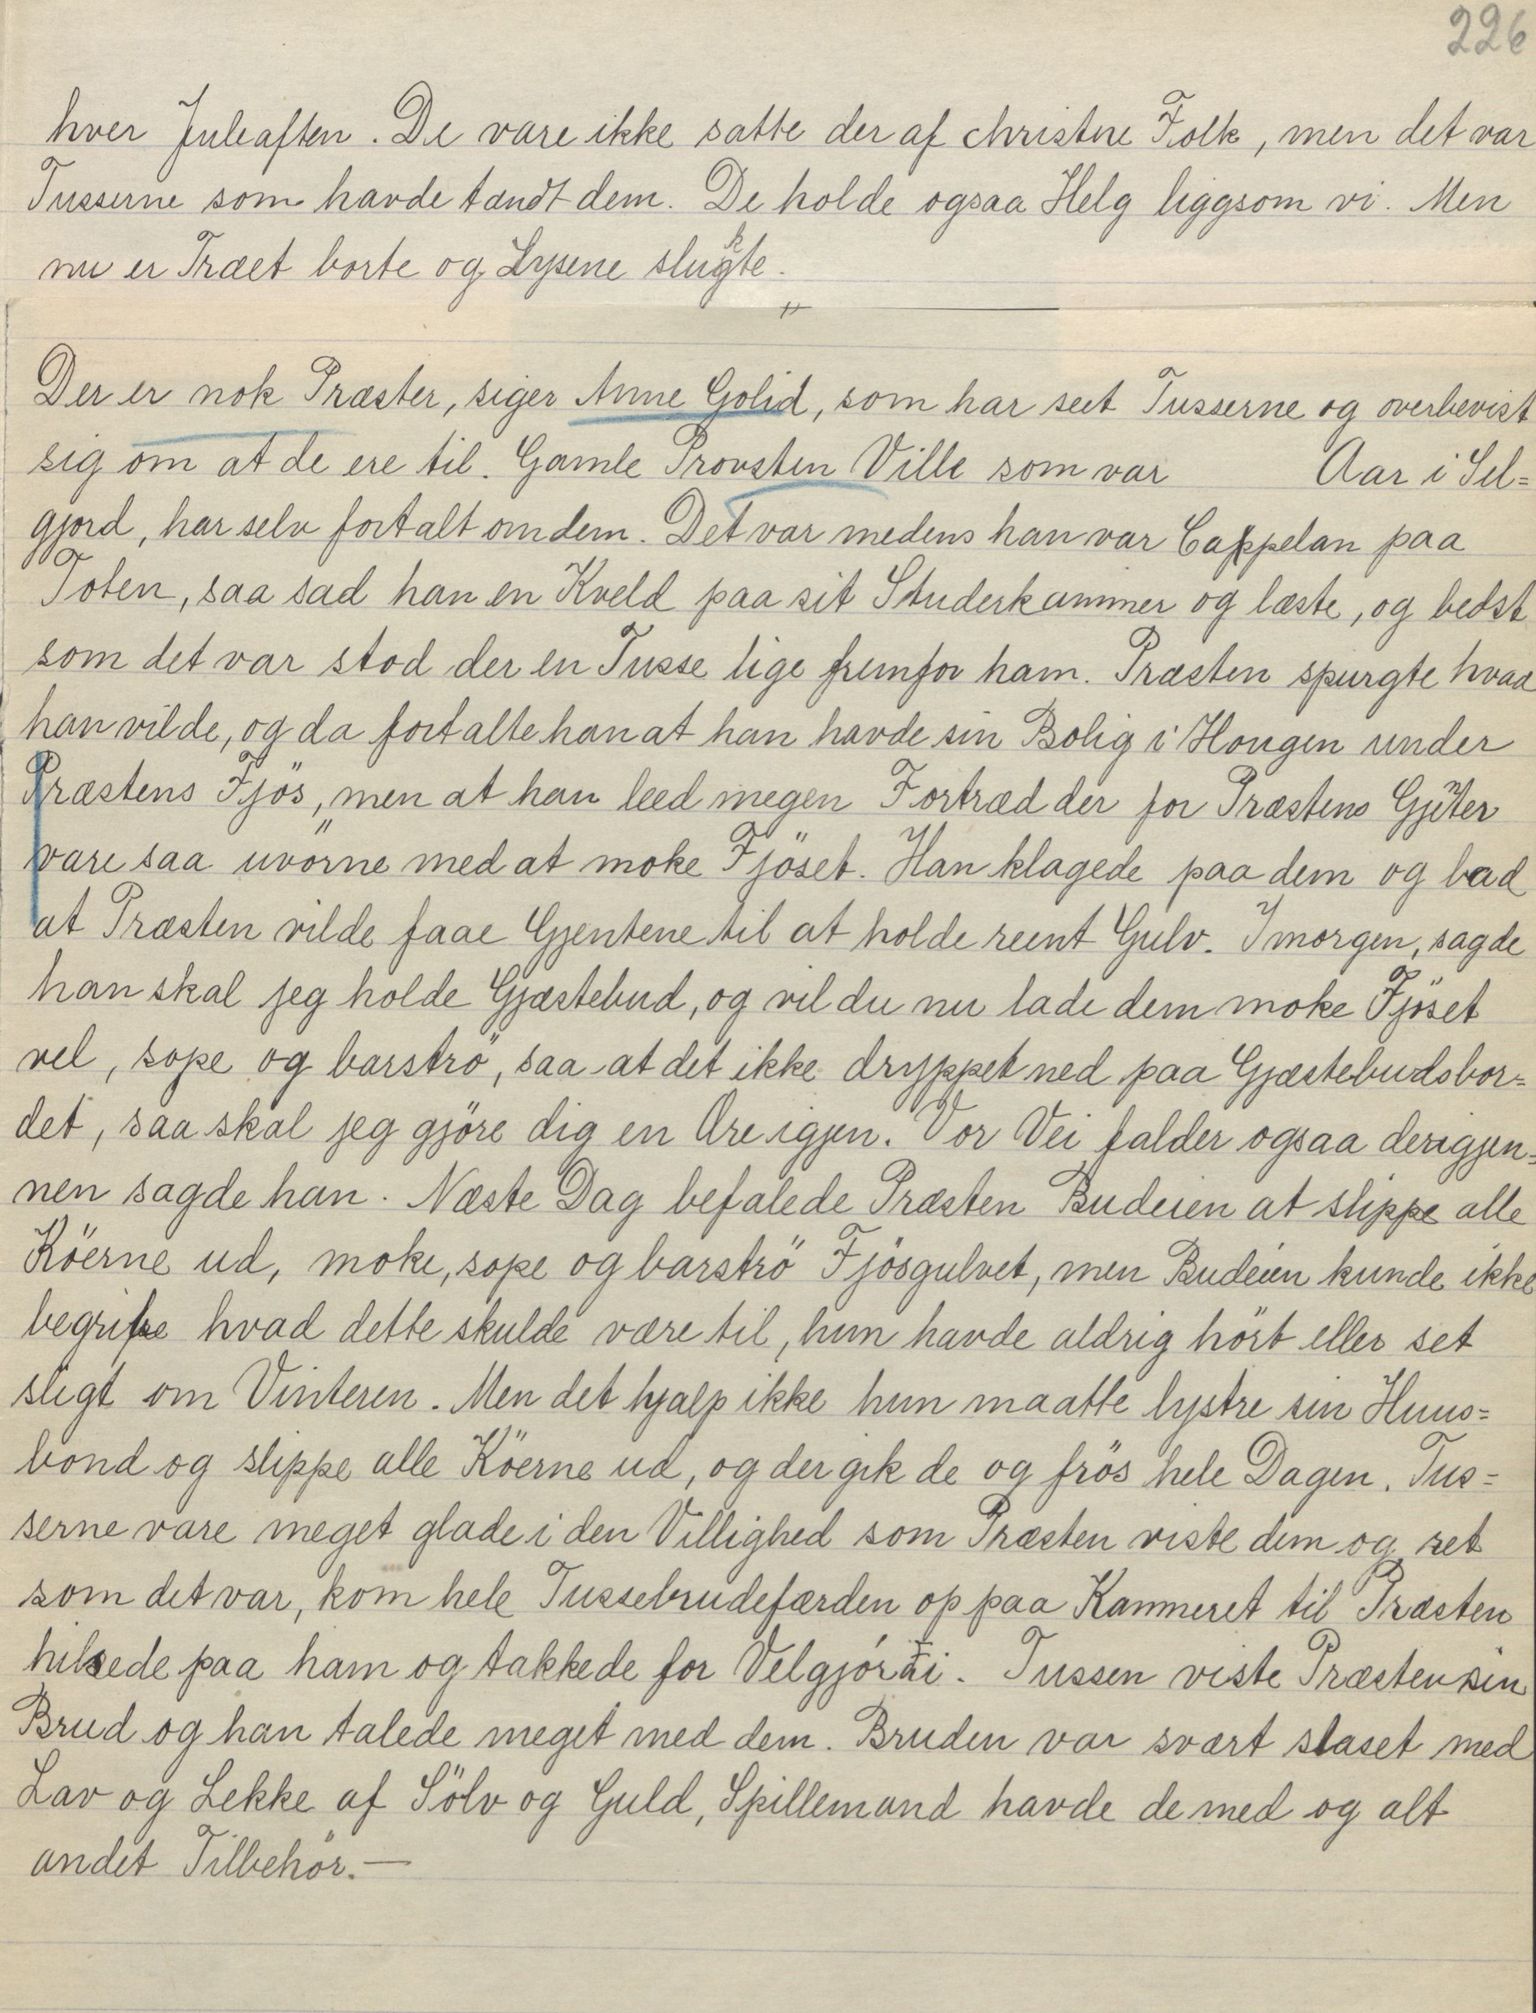 226
hver Juleaften. De vare ikke satte der af christne Folk, men det var
Tusserne som havde tændt dem. De holde ogsaa Helg liggsom vi. Men
nu er Træet borte og Lysene slugte.
Der er nok Præster, siger Anne Golid, som har seet Tusserne og overbevist
sig om at de ere til. Gamle Provsten Ville som var Aar i Sel=
gjord, har selv fortalt om dem. Det var medens han var Cappelan paa
Toten, saa sad han en Kveld paa sit Studerkammer og læste, og bedst
som det var stod der en Tusse lige fremfor ham. Præsten spurgte hvad
han vilde, og da fortalte han at han havde sin Bolig i Hougen under
Præstens Fjös, men at han leed megen Fortræd der for Præstens Gjeter
vare saa uvörne med at moke Fjöset. Han klagede paa dem og bad
at Præsten vilde faae Gjentene til at holde reent Gulv. Imorgen, sagde
han skal jeg holde Gjæstebud, og vil du nu lade dem moke Fjöset
vel, sope og barströ, saa at det ikke dryppet ned paa Gjæstebudsbor=
det, saa skal jeg gjöre dig en Ære igjen. Vor Vei falder ogsaa derigjen=
nen sagde han. Næste Dag befalede Præsten Budeien at slippe alle
Köerne ud, moke, sope og barströ Fjösgulvet, men Budeien kunde ikke
begribe hvad dette skulde være til, hun havde aldrig hört eller set
sligt om Vinteren. Men det hjalp ikke hun maatte lystre sin Huus=
bond og slippe alle Köerne ud, og der gik de og frös hele Dagen. Tus=
serne vare meget glade i den Villighed som Præsten viste dem og ret
som det var, kom hele Tussebrudefærden op paa Kammeret til Præsten
hilsede paa ham og takkede for Velgjörati. Tussen viste Præsten sin
Brud og han talede meget med dem. Bruden var svært staset med
Lav og Lekke af Sölv og Guld, Spillemand havde de med og alt
andet Tilbehör.—